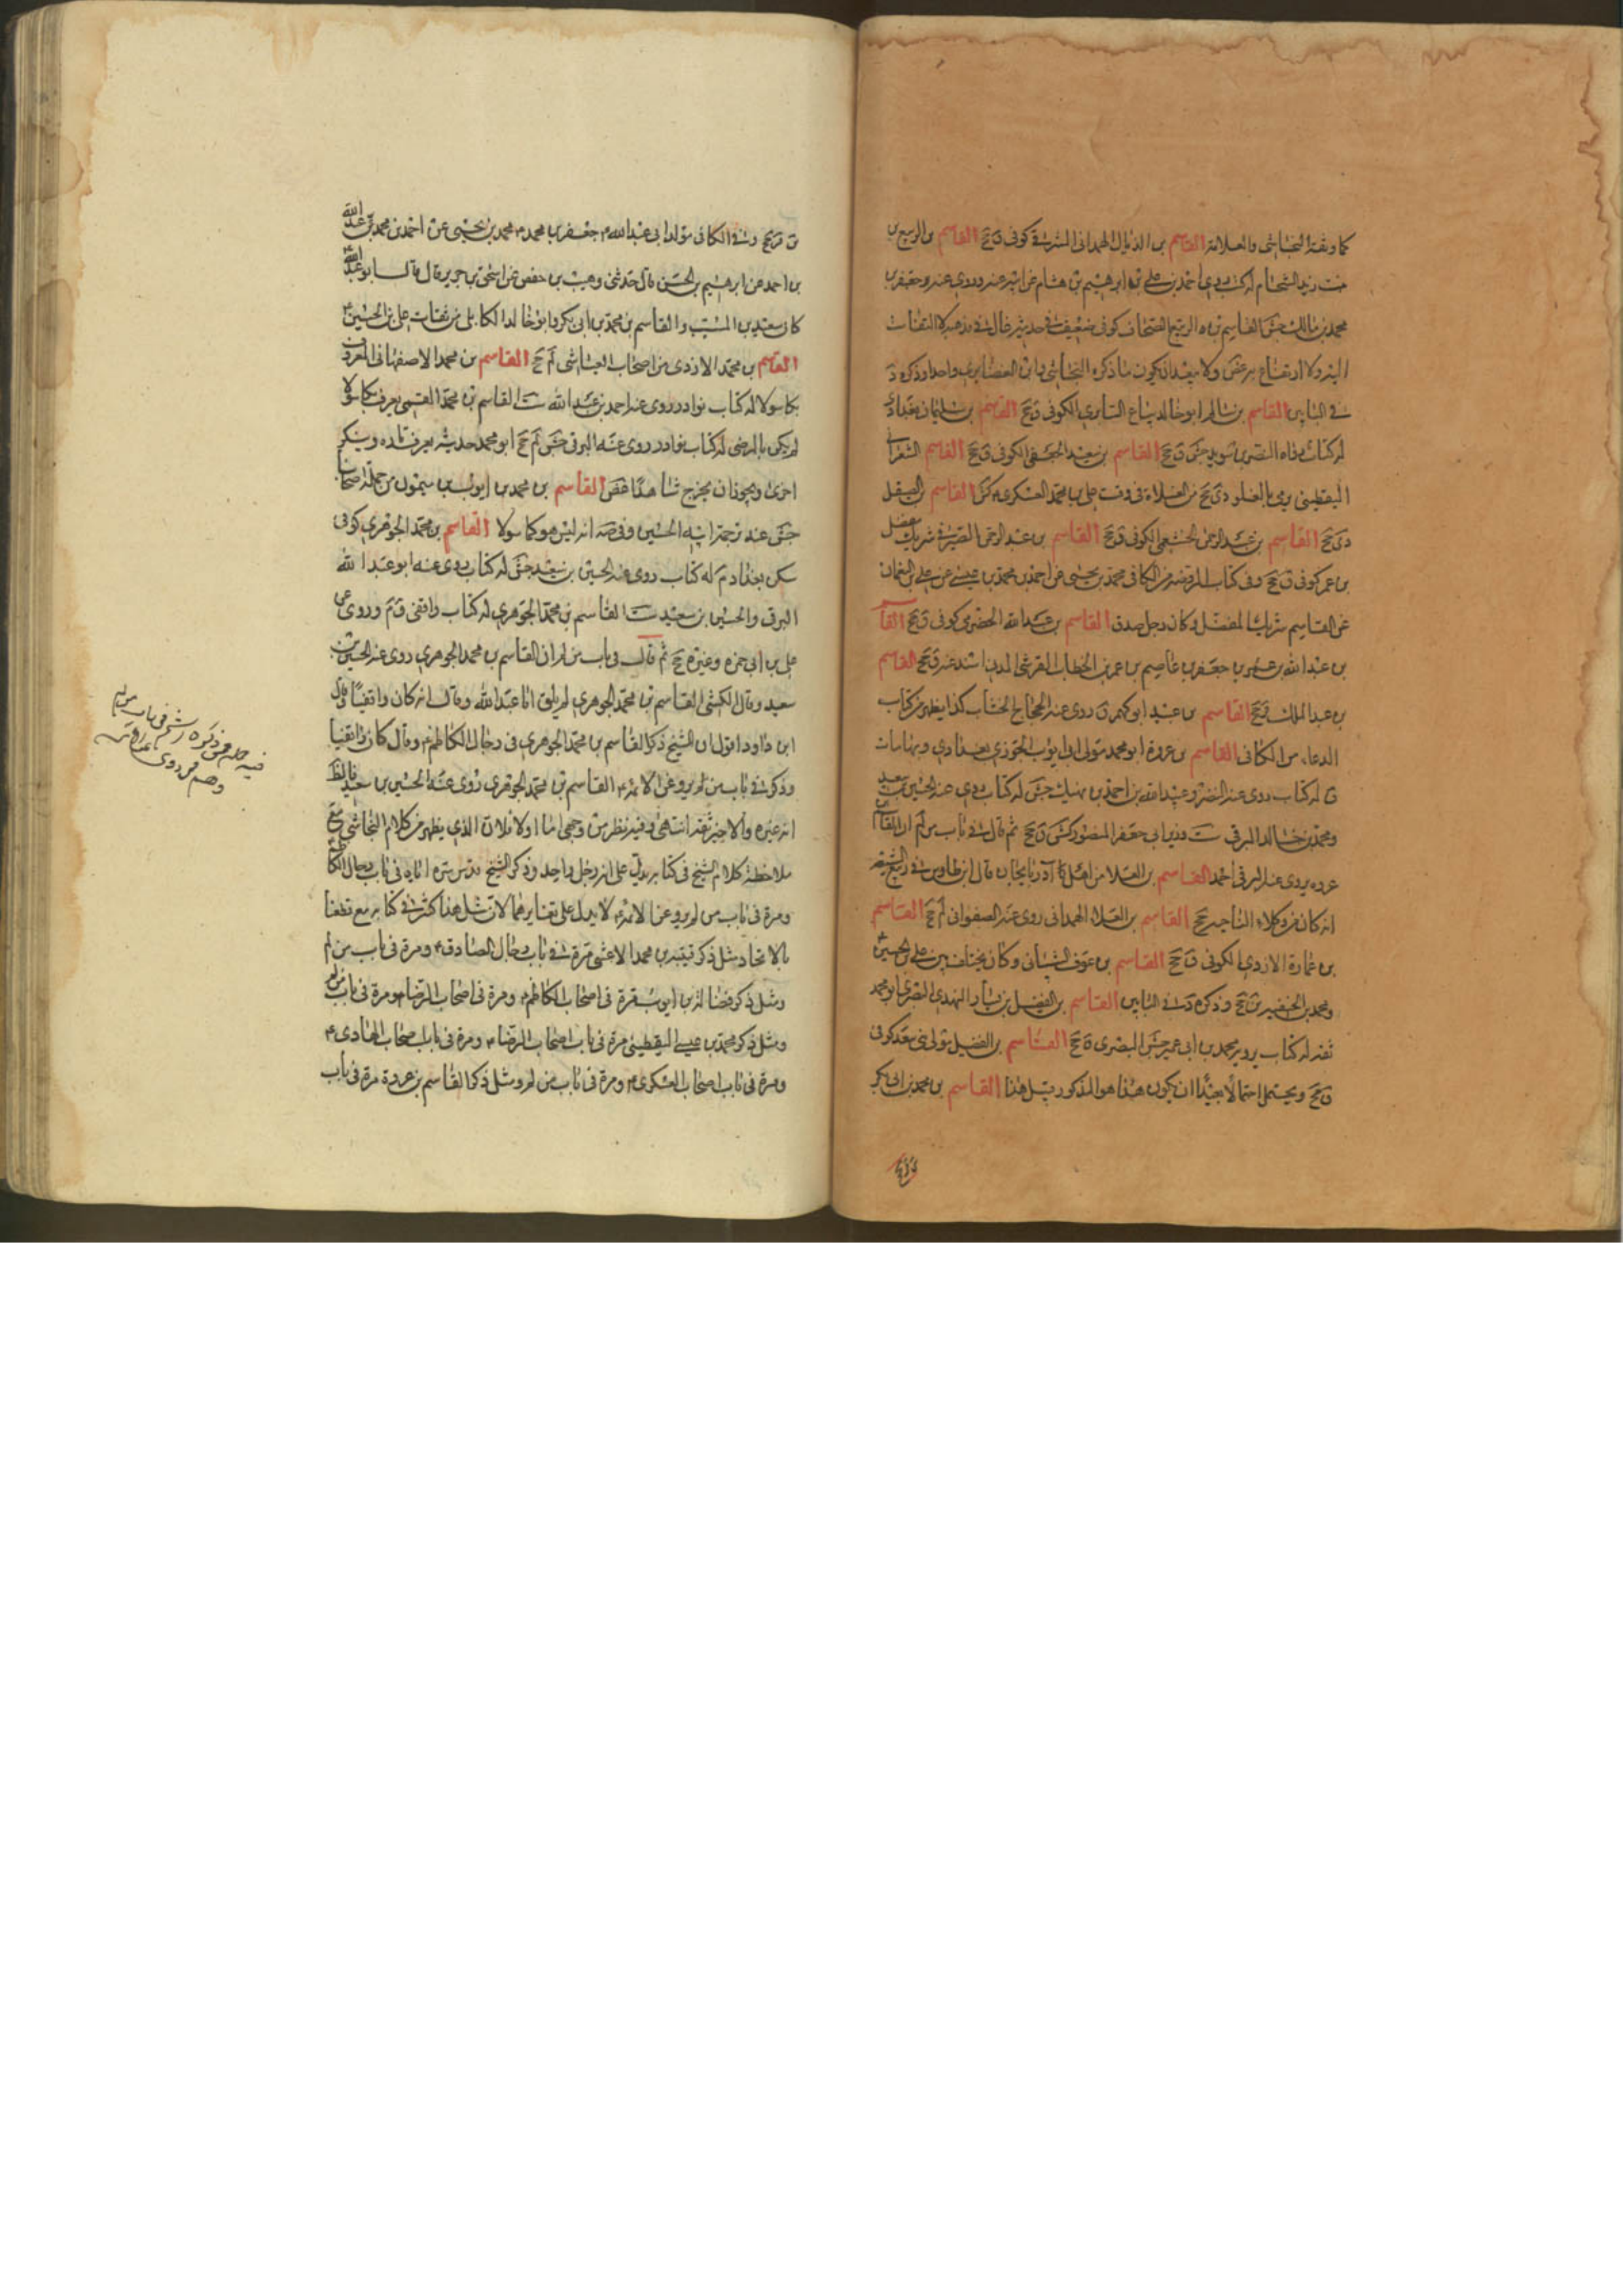 كما وثقه النجاشي والعلامة القاسم بن الذيال الهمداني المشرقي كوفي ق جخ القاسم بن الربيع بن
بنت زيد الشحام له كتاب روى احمد بن علي بن ابرهيم بن هشام عن ابيه عنه وروى عنه جعفر بن
محمد بن مالك جش القاسم بن الربيع الصحاف كوفي ضعيف في حديثه غال في مذهبه لا التفات
اليه ولا ارتفاع به غض ولا يبعد ان يكون ما ذكره النجاشي وابن الغضايري واحدا وذكره د
في البابين القاسم بن سالم ابو خالد بياع السابري الكوفي ق جخ القاسم بن سليمان بغدادي
له كتاب رواه النضر بن سويد جش ق جخ القاسم بن سعيد الجعفي الكوفي ق جخ القاسم الشعراني
اليقطيني يرمى بالغلو دي جخ من الغلاة في وقت علي بن محمد العسكري كش القاسم بن الصيقل
دي جخ القاسم بن عبد الرحمن الخثعمي الكوفي ق جخ القاسم بن عبد الرحمن الصيرفي شريك مفضل
بن عمر كوفي ق جخ وفي كتاب الروضة من الكافي محمد بن يحيى عن احمد بن محمد بن عيسى عن علي بن النعمان
عن القاسم شريك المفضل وكان رجل صدق القاسم بن عبد الله الحضرمي كوفي ق جخ القاسم
بن عبد الله بن عمر بن جعفر بن عاصم بن عمر بن الخطاب القرشي المدني اسند عنه ق جخ القاسم
بن عبد الملك ق جخ القاسم بن عبيد ابو كهمس ق روى عنه الحجاج الخشاب كذا يظهر من كتاب
الدعاء من الكافي القاسم بن عروة ابو محمد مولى ابي ايوب الخوزي بغدادي وبها مات
ق له كتاب روى عنه النضر وعبيد الله بن احمد بن نهيك جش له كتاب روى عنه الحسين بن سعيد
ومحمد بن خالد البرقي ست وزير ابي جعفر المنصور كش ق جخ ثم قال في باب من لم ان القاسم بن
عروة روى عنه البرقي احمد القاسم بن العلا من اهل آذربايجان قال ابن طاوس في ربيع الشيعة
انه كان من وكلاء الناحية جخ القاسم بن العلاء الهمداني روى عنه الصفواني لم جخ القاسم
بن عمارة الازدي الكوفي ق جخ القاسم بن عوف الشيباني وكان يختلف بين علي بن الحسين
ومحمد بن الحنفية ين جخ وذكره د في البابين القاسم بن الفضيل بن يسار النهدي البصري ابو محمد
ثقة له كتاب يرويه محمد بن ابي عمير جش البصري ق جخ القاسم بن الفضيل مولى بني سعد كوفي
ق جخ ويحتمل احتمالا بعيدا ان يكون هذا هو المذكور قبيل هذا القاسم بن محمد بن ابي بكر
ين قر جخ وفي الكافي مولد ابي عبد الله جعفر بن محمد محمد بن يحيى عن احمد بن محمد عن عبد الله
بن احمد عن ابرهيم بن الحسن قال حدثني وهيب بن حفص عن اسحق بن جرير قال قال ابو عبد الله
كان سعيد بن المسيب والقاسم بن محمد بن ابي بكر وابو خالد الكابلي من ثقات علي بن الحسين
القاسم بن محمد الازدي من اصحاب العياشي لم جخ القاسم بن محمد الاصفهاني المعروف
بكاسولا له كتاب نوادر روى عنه احمد بن عبد الله ست القاسم بن محمد القمي يعرف بكاسولا
لم يكن بالمرضي له كتاب نوادر روى عنه البرقي جش لم جخ ابو محمد حديثه يعرف تارة وينكر
اخرى ويجوز ان يخرج شاهدا غض القاسم بن محمد بن ايوب بن ميمون من جملة اصحابنا
جش عند ترجمة ابنه الحسين وفي صه انه ليس هو كاسولا القاسم بن محمد الجوهري كوفي
سكن بغداد م له كتاب روى عنه الحسين بن سعيد جش له كتاب روى عنه ابو عبد الله
البرقي والحسين بن سعيد ست القاسم بن محمد الجوهري له كتاب واقفي ق م وروى عن
علي بن ابي حمزه وغيره جخ ثم قال في باب من لم ان القاسم بن محمد الجوهري روى عنه الحسين بن
سعيد وقال الكشي القاسم بن محمد الجوهري لم يلق ابا عبد الله وقال انه كان واقفيا وقال
ابن داود اقول ان الشيخ ذكر القاسم بن محمد الجوهري في رجال الكاظم وقال كان واقفيا
وذكر في باب من لم يرو عن الائمة القاسم بن محمد الجوهري روى عنه الحسين بن سعيد فالظاهر
انه غيره والاخير ثقة انتهى وفيه نظر من وجهين اما اولا فلان الذي يظهر من كلام النجاشي مع
ملاحظة كلام الشيخ في كتابه يدل على انه رجل واحد وذكر الشيخ قدس سره اياه في باب رجال الكاظم
ومرة في باب من لم يرو عن الائمة لا يدل على تغايرهما لان مثل هذا كثير في كتابه مع قطعنا
بالاتحاد مثل ذكر قتيبة بن محمد الاعشى مرة في باب رجال الصادق ومرة في باب من لم
ومثل ذكر فضالة بن ايوب مرة في اصحاب الكاظم ومرة في اصحاب الرضا ومرة في باب من لم
ومثل ذكر محمد بن عيسى اليقطيني مرة في باب اصحاب الرضا ومرة في باب اصحاب الهادي
ومرة في باب اصحاب العسكري ومرة في باب من لم ومثل ذكر القاسم بن عروة مرة في باب